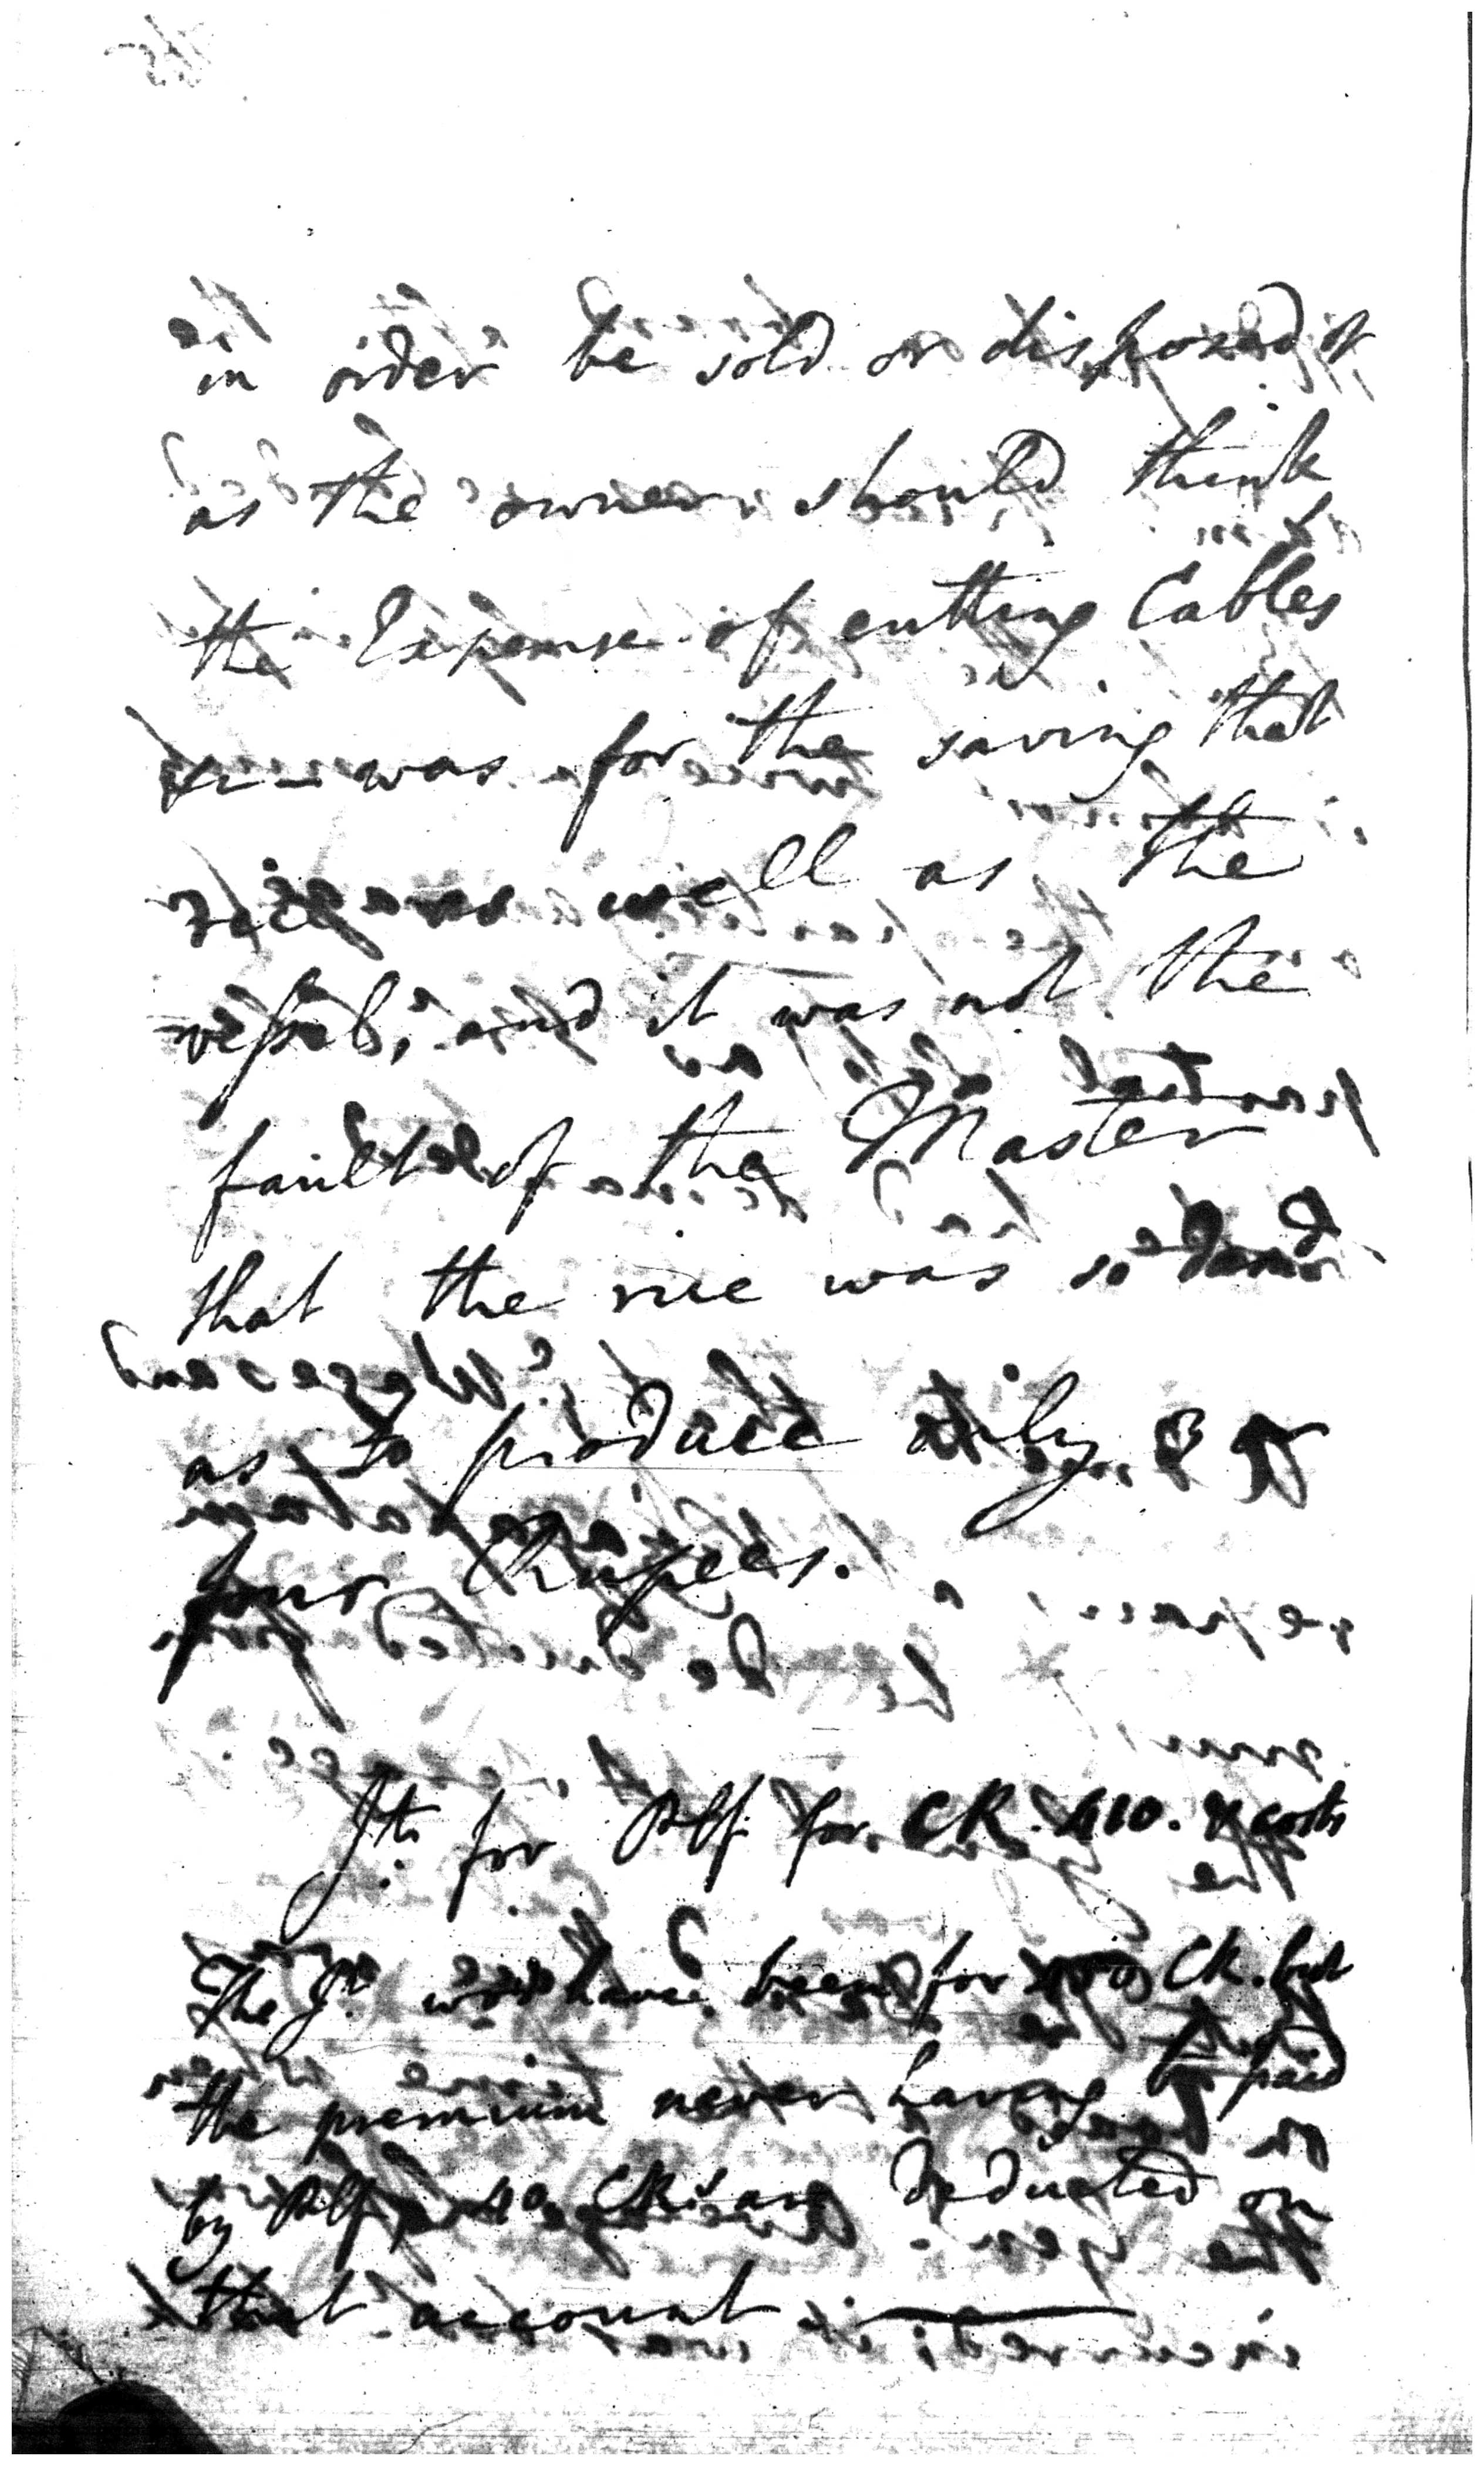 in order be sold or disposed of
as the owner should think
the Expense of cutting Cables
was for the saving that
rice as well as the
vessel, and it was not the
fault of the Master
that the rice was so damd
as to produce only 3 or
four Rupees.
Jt. for Plf. for CR. 410. & costs
The Jt. wd have been for CR. but
the premium never having been paid
by Plf, 40 CRs are deducted on
that account.